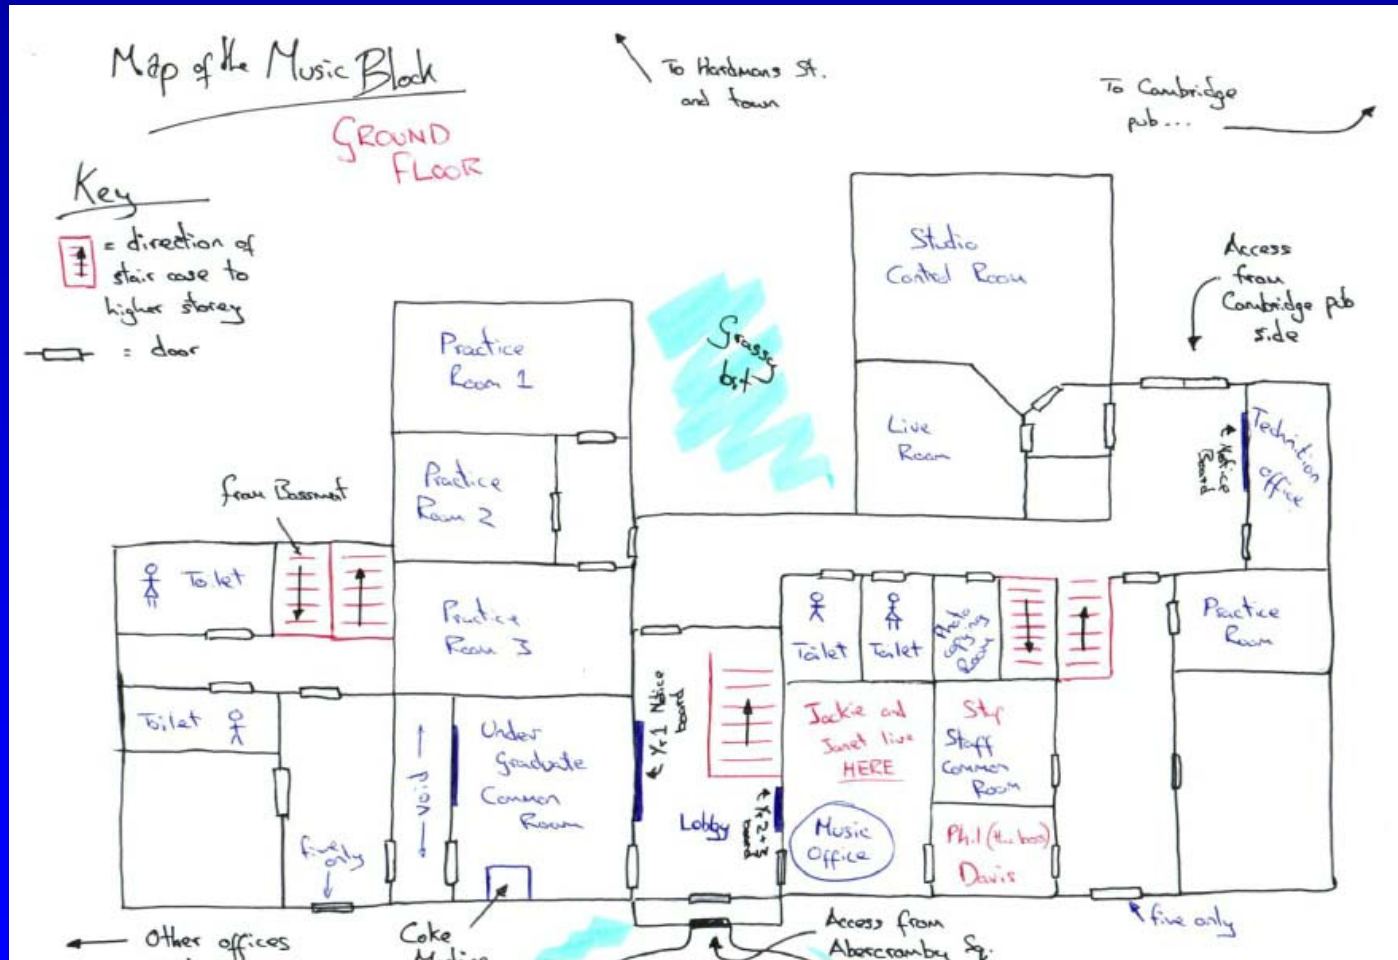 Map of the Music Block
GROUND
FLOOR
To Hardmans St.
and town
To Cambridge
pub...
Key
= direction of
stair case to
higher storey
= door
Studio
Control Room
Access
from
Cambridge pub
side
Grassy
bit
Practice
Room 1
Live
Room
Notice
Board
Technition
office
Practice
Room 2
from Bassment
Toilet
Practice
Room 3
Toilet
Toilet
Photo
copying
Room
Practice
Room
Toilet
void
Under
graduate
Common
Room
Yr 1 Notice
board
Jackie and
Janet live
HERE
Staff
Common
Room
Lobby
Yr 2+3
board
Music
Office
Phil (the boss)
Davis
five only
five only
Other offices
Coke
Access from
Abercromby Sq.